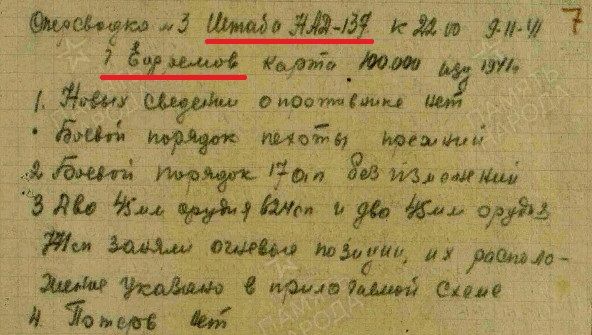 Оперсводка № 3 Штаба НАД-137 к 22 00 9-11-41 7
г Ефремов карта 100.000 изд 1941г
1. Новых сведений о противнике нет
• Боевой порядок пехоты прежний
2 Боевой порядок 17 ап без изменений
3 Два 45 мм орудия 624 сп и два 45 мм орудия
771 сп заняли огневые позиции, их располо-
жение указано в прилагаемой схеме
4. Потерь нет